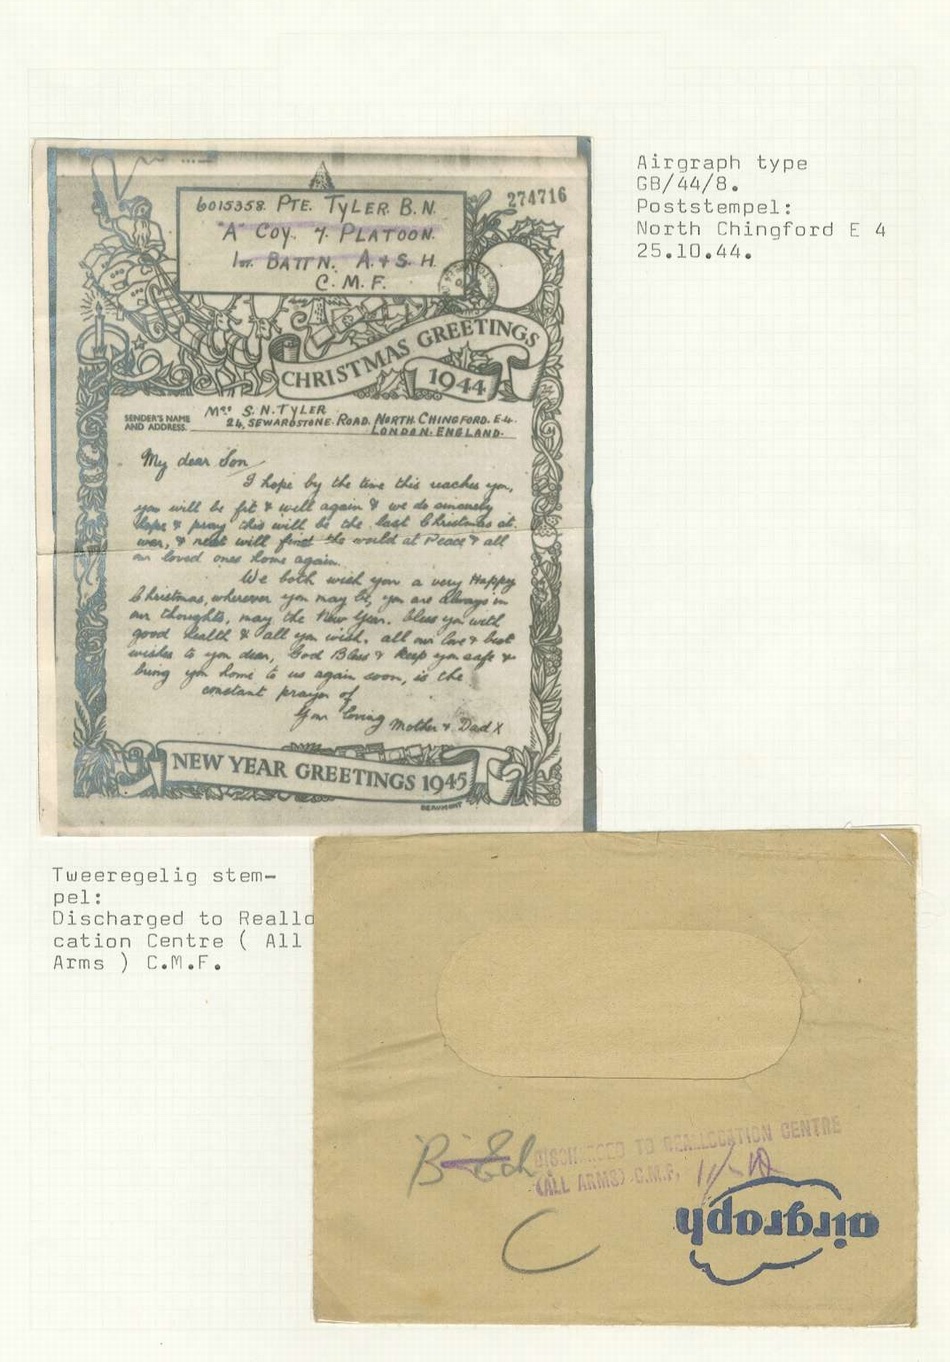 Airgraph type
GB/44/8.
Poststempel:
North Chingford E 4
25.10.44.
274716
6015358 PTE. TYLER. B.N.
"A" COY. 7. PLATOON.
1ST. BATTN. A. & S. H.
C. M. F.
CHRISTMAS GREETINGS
1944
SENDER'S NAME
AND ADDRESS.
Mrs S. N. TYLER
24, SEWARDSTONE. ROAD. NORTH. CHINGFORD. E.4.
LONDON. ENGLAND.
My dear Son
I hope by the time this reaches you,
you will be fit & well again & we do sincerely
hope & pray this will be the last Christmas at
war, & next will find the world at Peace & all
our loved ones home again.
We both wish you a very Happy
Christmas, wherever you may be, you are always in
our thoughts, may the New Year. bless you with
good health & all you wish. all our love & best
wishes to you dear, God Bless & keep you safe &
bring you home to us again soon, is the
constant prayer of
Your loving Mother & Dad X
NEW YEAR GREETINGS 1945
BEAUMONT
Tweeregelig stem-
pel:
Discharged to Reallo
cation Centre ( All
Arms ) C.M.F.
"B" Ech
DISCHARGED TO REALLOCATION CENTRE
(ALL ARMS) C.M.F.
C
airgraph